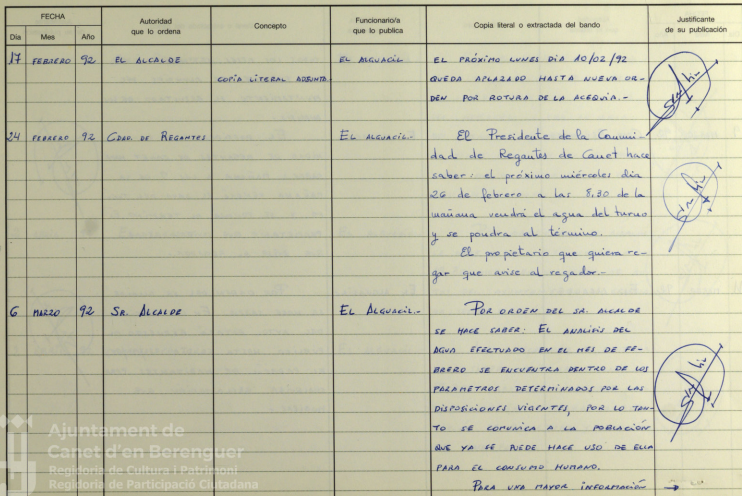 FECHA
Día Mes Año
Autoridad
que lo ordena
Concepto
Funcionario/a
que lo publica
Copia literal o extractada del bando
Justificante
de su publicación
17 FEBRERO 92 EL ALCALDE
COPIA LITERAL ADJUNTA.
EL ALGUACIL
EL PRÓXIMO LUNES DIA 10/02/92
QUEDA APLAZADO HASTA NUEVA OR-
DEN POR ROTURA DE LA ACEQUIA.-
24 FEBRERO 92 CDAD. DE REGANTES
EL ALGUACIL.-
El Presidente de la Comuni-
dad de Regantes de Canet hace
saber: el próximo miércoles dia
26 de febrero a las 8,30 de la
mañana vendrá el agua del turno
y se pondra al término.
El propietario que quiera re-
gar que avise al regador.-
6 MARZO 92 SR. ALCALDE
EL ALGUACIL.-
POR ORDEN DEL SR. ALCALDE
SE HACE SABER: EL ANALISIS DEL
AGUA EFECTUADO EN EL MES DE FE-
BRERO SE ENCUENTRA DENTRO DE LOS
PARAMETROS DETERMINADOS POR LAS
DISPOSICIONES VIGENTES, POR LO TAN-
TO SE COMUNICA A LA POBLACIÓN
QUE YA SE PUEDE HACE USO DE ELLA
PARA EL CONSUMO HUMANO.
PARA UNA MAYOR INFORMACIÓN →
Ajuntament de
Canet d'en Berenguer
Regidoria de Cultura i Patrimoni
Regidoria de Participació Ciutadana